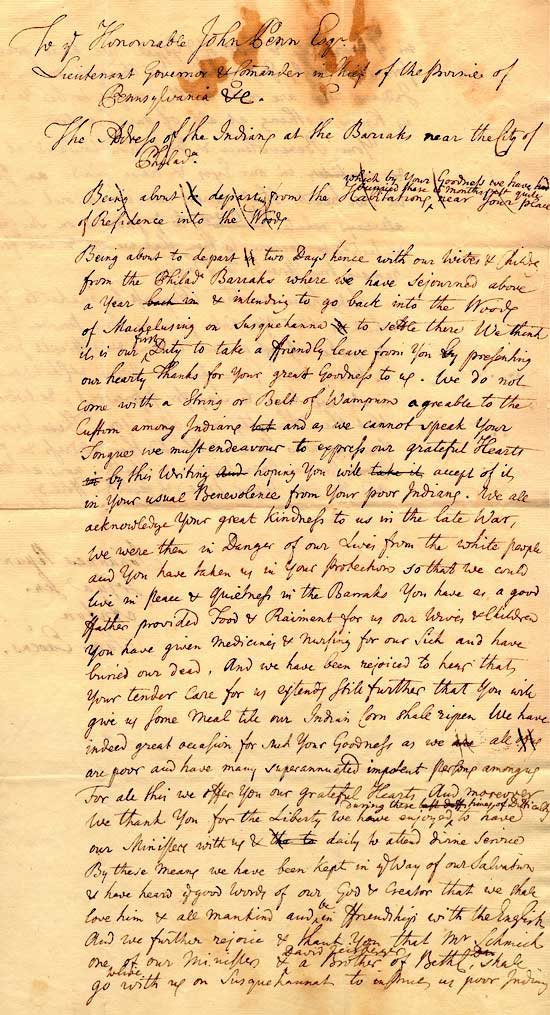 To yͤ Honourable John Penn Esqʳ.
Lieutenant Governor & Comander in Chief of the Province of
Pennsylvania &c.
The Address of the Indians at the Barraks near the City of
Philadᵃ.
which by Your Goodness we have had
& enjoyed these months past quite
Being about to departing from the Habitations near your place
of Residence into the Woods
Being about to depart two Days hence with our Wives & Childr
from the Philadᵃ Barraks where we have Sejourned above
a Year back in & intending to go back into the Woods
of Machglusing on Susquehanna & to settle there We think
it is our first Duty to take a ffriendly leave from You by presenting
our hearty Thanks for Your great Goodness to us. We do not
come with a String or Belt of Wampum agreable to the
Custom among Indians but and as we cannot speak Your
Tongue we must endeavour to express our grateful Hearts
in by this Writing and hoping You will take it accept of it
in Your usual Benevolence from Your poor Indians. We all
acknowledge Your great kindness to us in the late War,
we were then in Danger of our Lives from the white people
and You have taken us in Your protection so that we could
live in Peace & Quietness in the Barraks You have as a good
ffather provided Food & Raiment for us our Wives & Children
You have given Medicines & Nursing for our Sick and have
buried our dead, And we have been rejoiced to hear that
Your tender Care for us extends still further that You will
give us some Meal till our Indian Corn shall ripen We have
indeed great occasion for such Your Goodness as we are all
are poor and have many superannuated impotent Persons among us
For all this we offer You our grateful Hearts, And moreover
during these last diff times of Difficulty
We thank You for the Liberty we have enjoyed to have
our Ministers with us & the to daily to attend divine Service
By these Means we have been kept in yͤ Way of our Salvation
& have heard yͤ good Words of our God & Creator that we shall
love him & all Mankind and be in ffriendship with the English
And we further rejoice & thank You that Mr Schmick
one of our Ministers & David Zeisberger a Brother of Bethlᵐ shall
go & live with us on Susquehannah to instruct us poor Indians